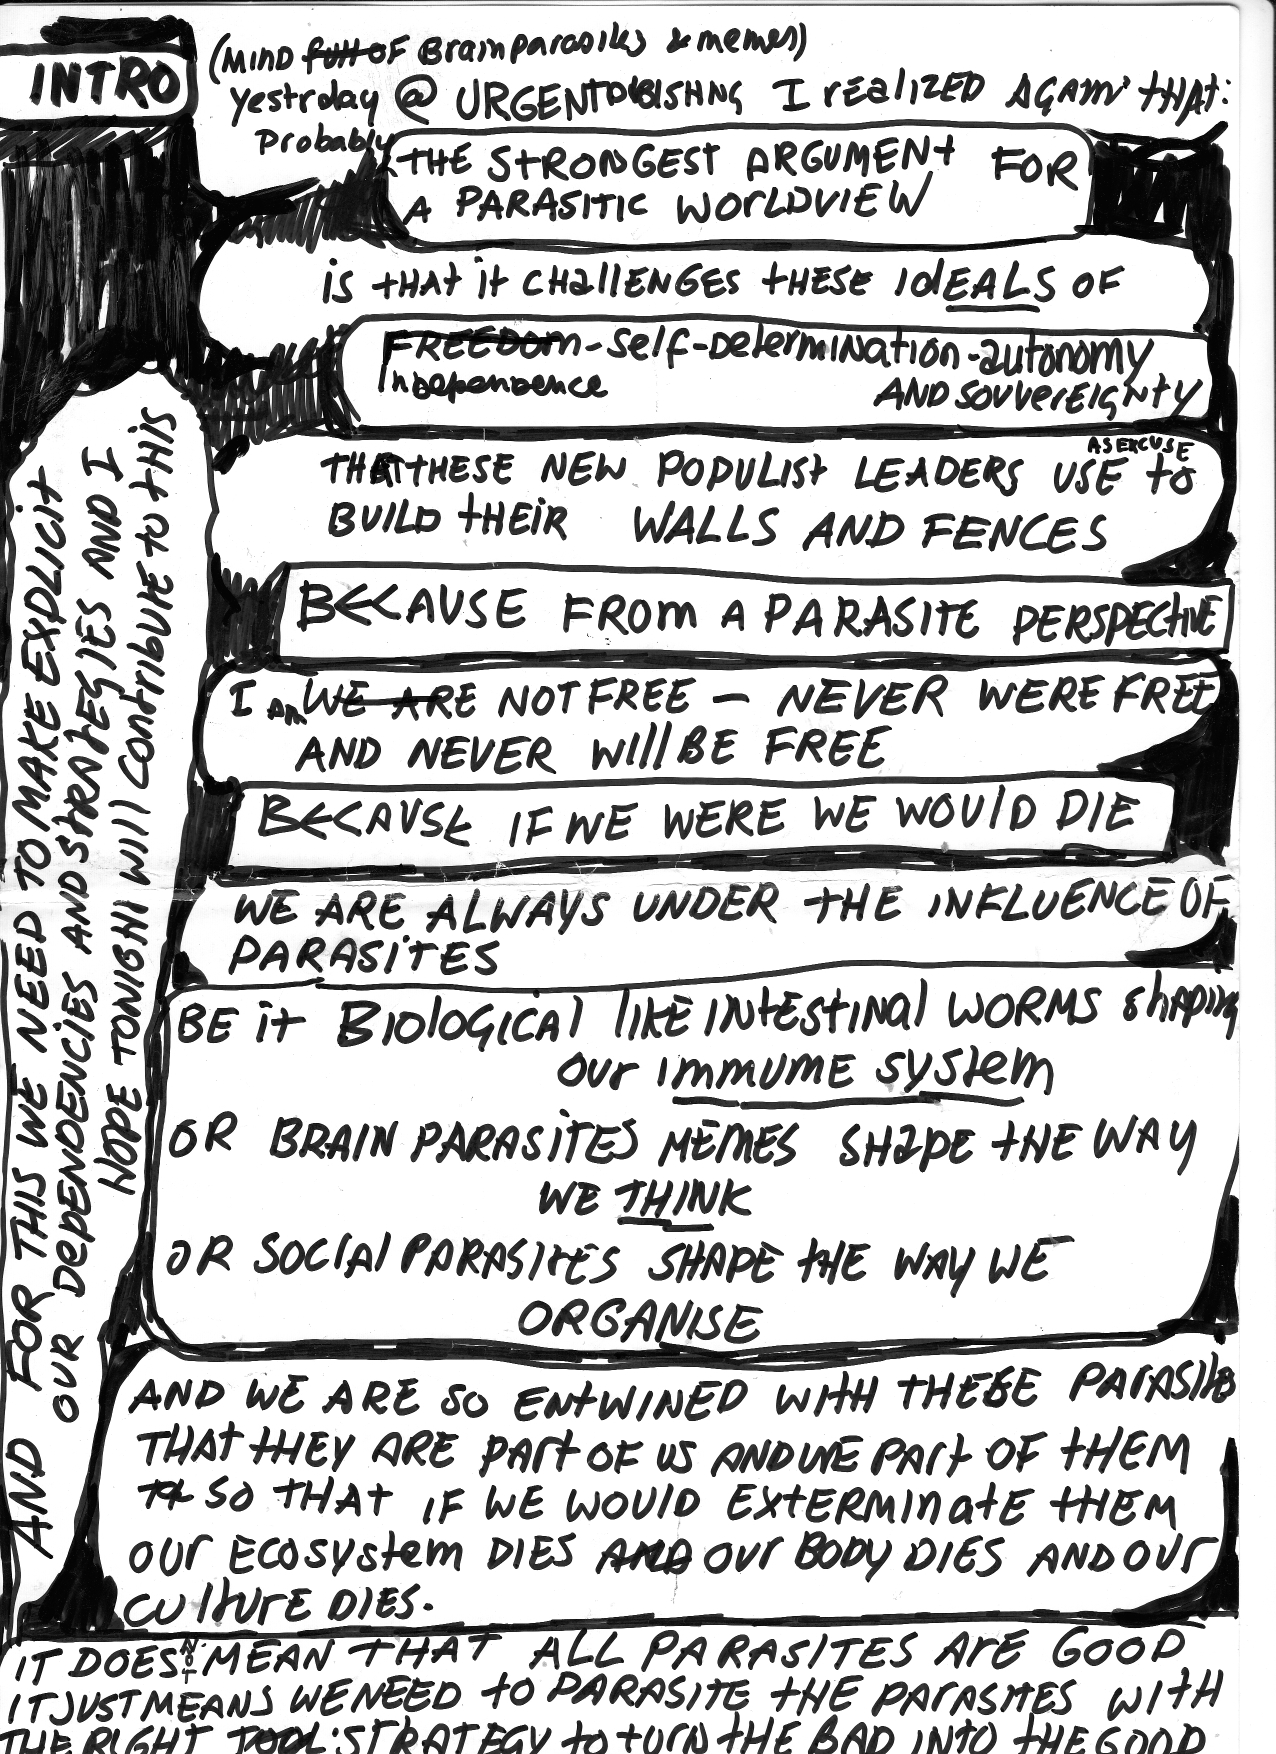 INTRO
(MIND full OF Brainparasites & memes)
yestrday @ URGENTPUBLISHING I realIZED AGAIN THAT:
Probably
THE STRONGEST ARGUMENT FOR
A PARASITIC WORLDVIEW
is tHAt it CHAllENGES tHESE IdEALS OF
FREEDOM-Self-DetermINation-autonomy
Independence AND SOVVerEIGNtY
THAT THESE NEW POPULISt LEADERS USE AS EXCUSE to
BUILD tHEIR WALLS AND FENCES
BECAUSE FROM A PARASITE PERSPECTIVE
I AM WE ARE NOT FREE – NEVER WERE FREE
AND NEVER WillBE FREE
BECAUSE IF WE WERE WE WOUlD DIE
WE ARE ALWAYS UNDER tHE INFLUENCE OF
PARASITES
BE it BIOlOGICAl lIKE INtEStINAl WORMS shaping
our IMMUME system
OR BRAIN PARASITES MEMES SHAPE tHE WAY
WE THINK
OR SOCIAl PARASITES SHAPE tHE WAY WE
ORGANISE
AND WE ARE SO ENtWINED WITH THESE PARASItES
THAt tHEY ARE part OF US AND WE PArt OF tHEM
SO tHAt IF WE WOULD EXtERMINatE tHEM
our ECOSystem DIES AND our BODY DIES AND OUr
CUltUrE DIES.
IT DOES NOT MEAN tHAT ALL PARASITES ArE GOOD
IT JUST MEANS WE NEED to PARASITE tHE PArASITES WItH
THE RIGHT TOOL: STRATEGY to tUrN tHE BAD INtO tHE GOOD
AND FOR THIS WE NEED TO MAKE EXPLICIt
OUR DePENDENCIES AND StRAtEGIES AND I
HOPE TONIGHt WIll Contribute to tHis